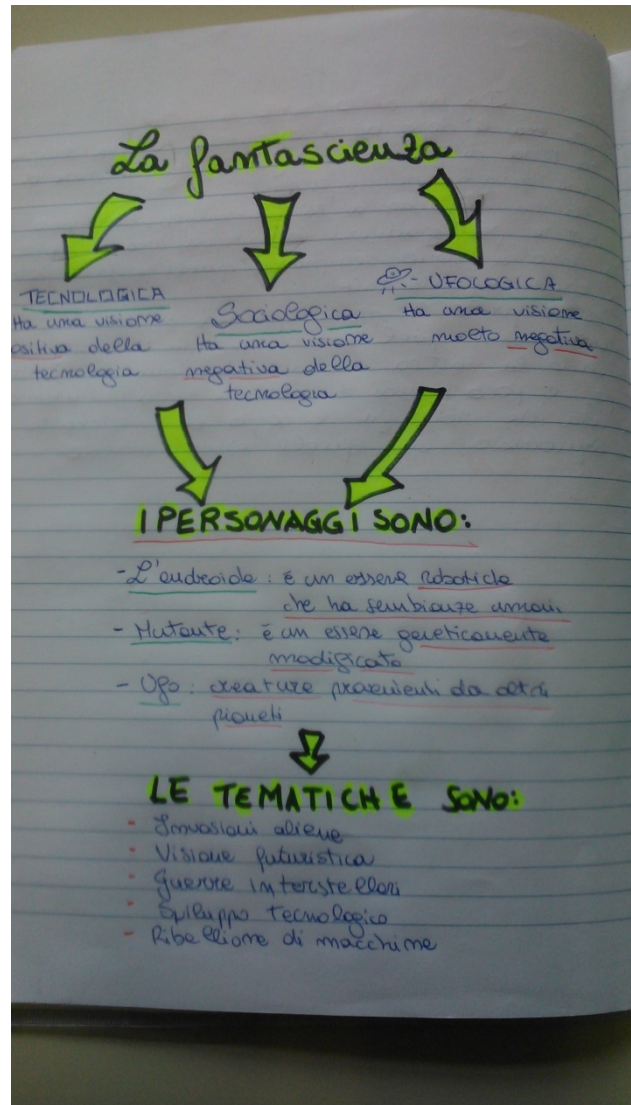 La fantascienza
TECNOLOGICA
Ha una visione
ositiva della
tecnologia
Sociologica
Ha una visione
negativa della
tecnologia
- UFOLOGICA
Ha una visione
molto negativa
I PERSONAGGI SONO:
- L'androide: é un essere robotico
che ha sembianze umani
- Mutante: é un essere geneticamente
modificato
- Ufo: creature provenienti da altri
pianeti
LE TEMATICHE SONO:
- Invasioni aliene
- Visione futuristica
- Guerre interstellari
- Sviluppo tecnologico
- Ribellione di macchine